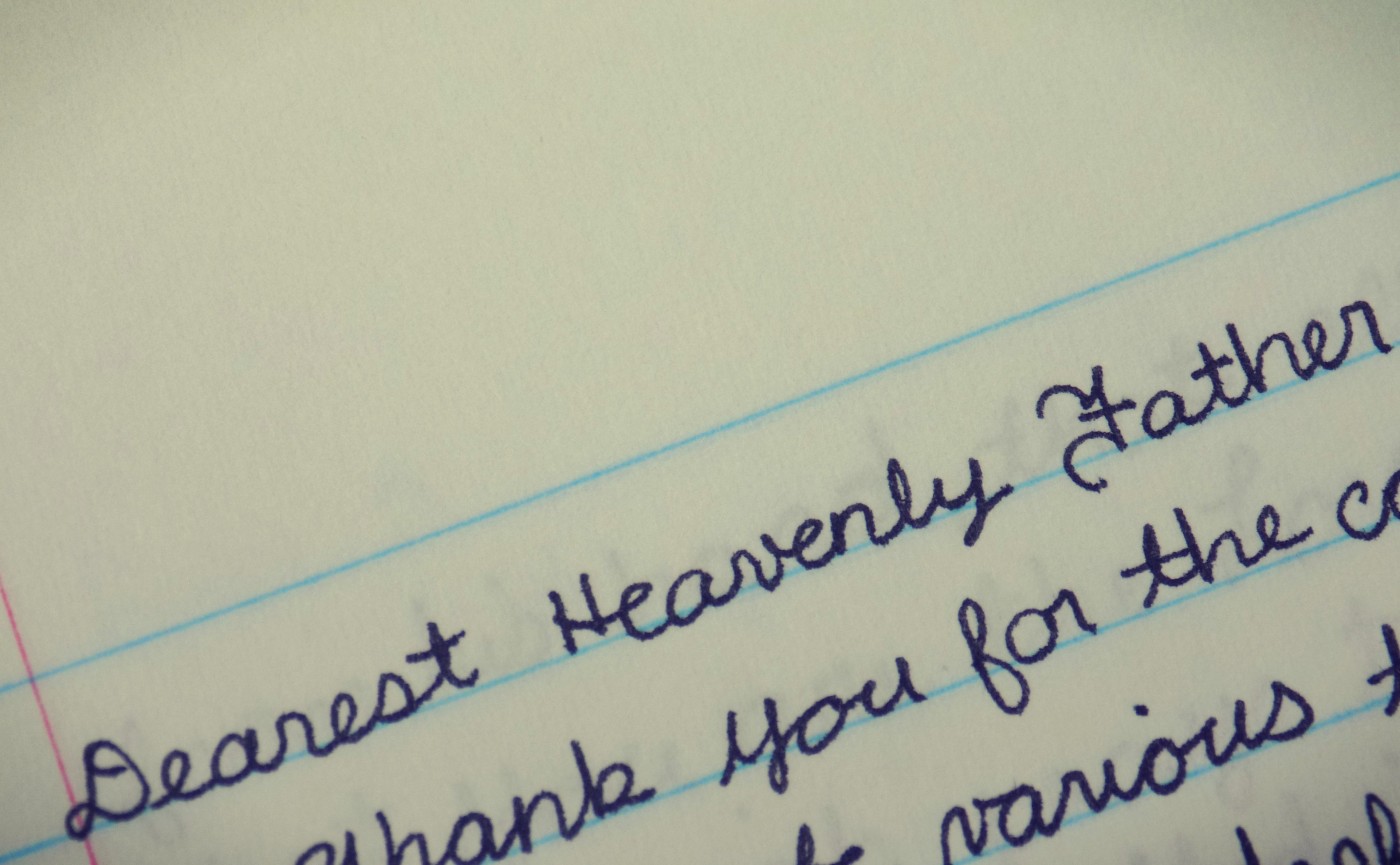 Dearest Heavenly Father
Thank you for the
various